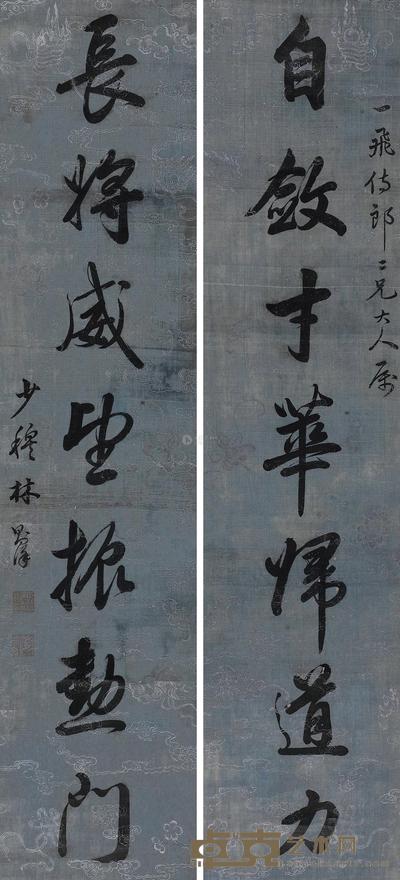 一飛侍郎二兄大人屬
自斂才華歸道力
長將威望振勳門
少穆林則徐
卓克艺术网